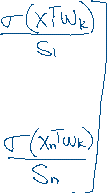 σ(xᵀWₖ)
S₁
σ(xₙᵀWₖ)
Sₙ